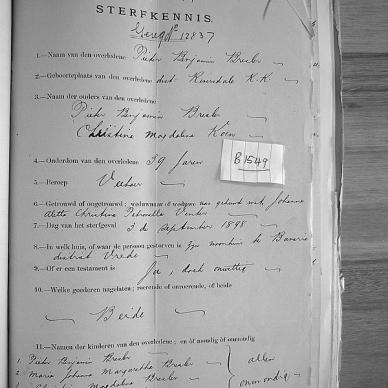 STERFKENNIS.
Geregd No 12837
1.—Naam van den overledene Pieter Benjamin Bresler
2.—Geboorteplaats van den overledene dist: Riversdale K. K.
3.—Naam der ouders van den overledene
Pieter Benjamin Bresler
Christina Magdalena Koen
4.—Ouderdom van den overledene 39 Jaren
B1549
5.—Beroep Veeboer
6.—Getrouwd of ongetrouwd; weduwnaar of weduwe was gehuwd met Johanna
Aletta Christina Petronella Venter
7.—Dag van het sterfgeval 3 de September 1898
8.—In welk huis, of waar de persoon gestorven is zyn woonhuis te Bavaria
distrikt Vrede
9.—Of er een testament is Ja, doch onwettig
10.—Welke goederen nagelaten; roerende of onroerende, of beide
Beide
11.—Namen der kinderen van den overledene; en òf mondig òf onmondig
1. Pieter Benjamin Bresler
2. Maria Johanna Margaretha Bresler
Magdalena Bresler
allen
onmondig